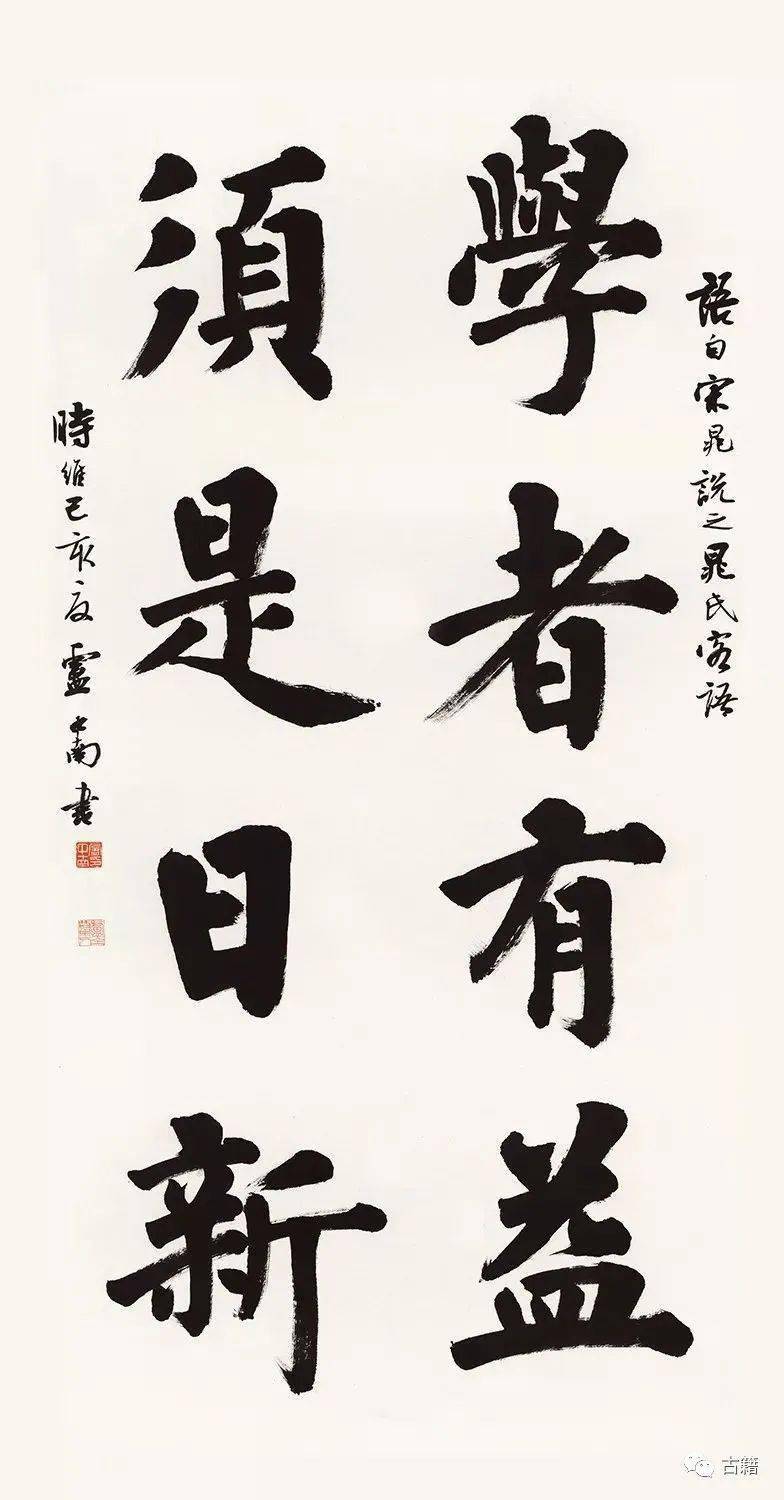 語自宋晁說之晁氏客語
學者有益
須是日新
時維己亥夏盧中南書
古籍